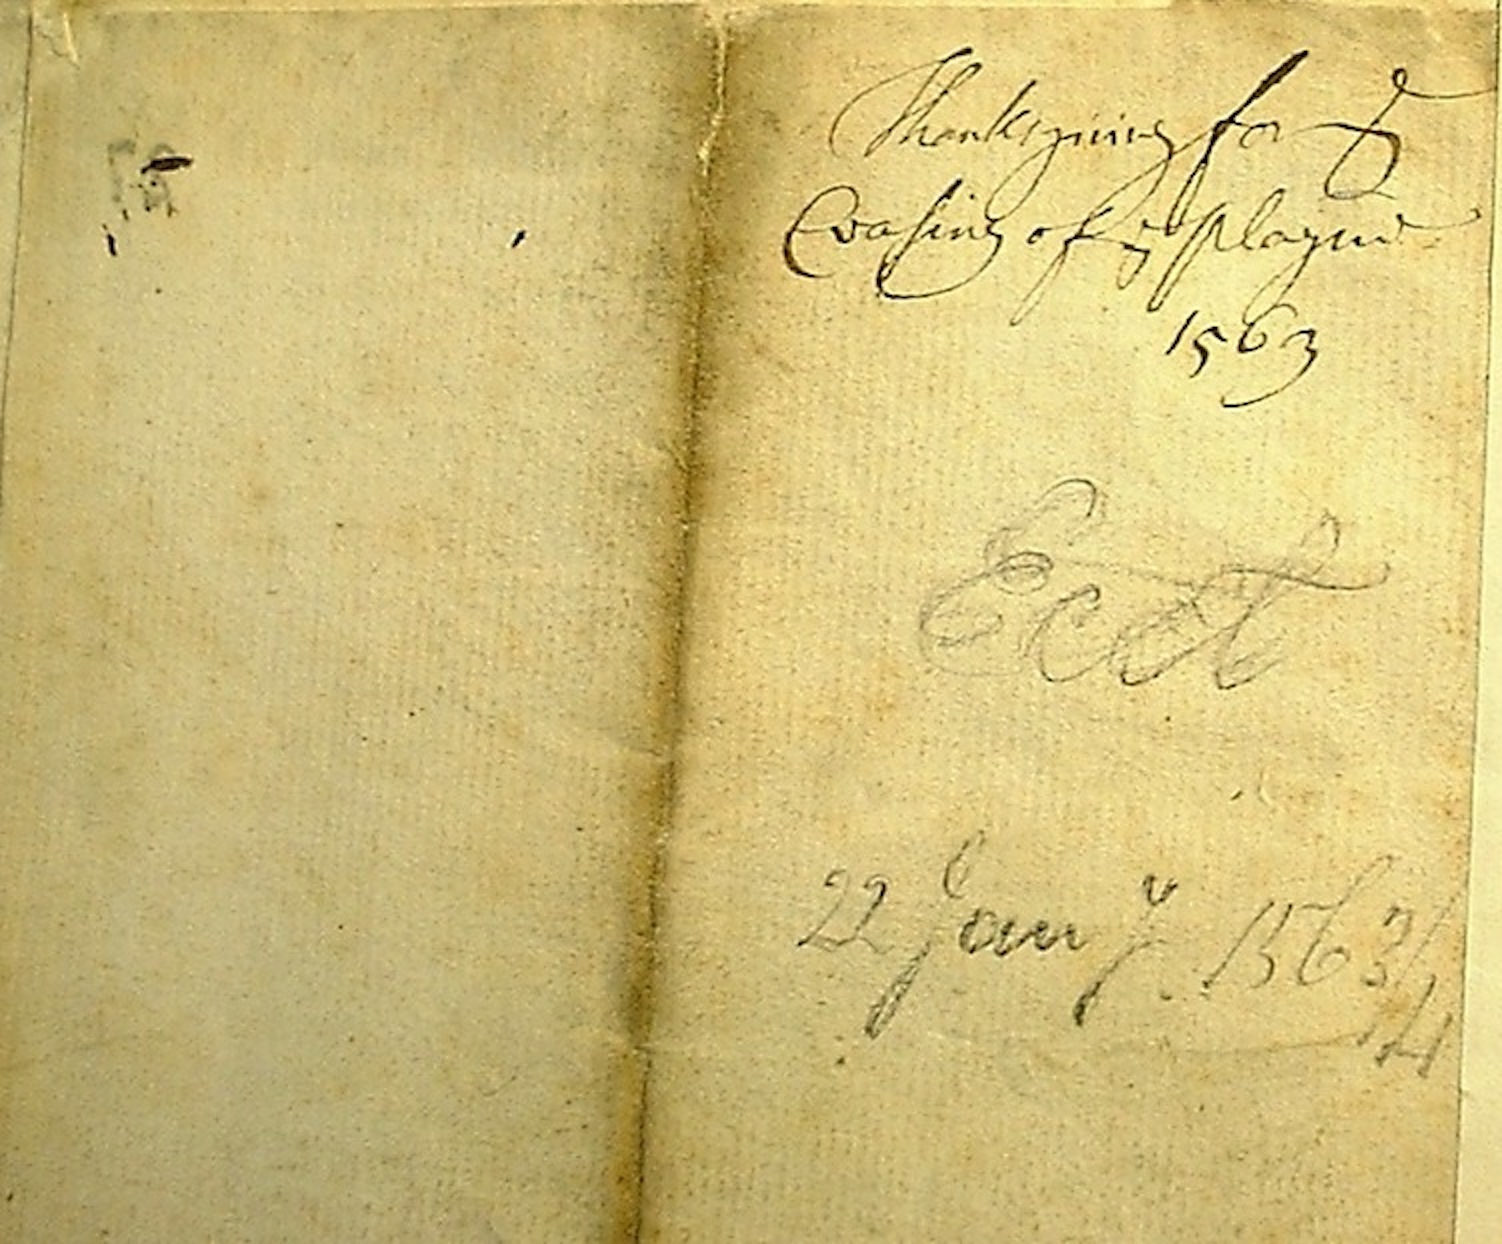 Thanksgiving for ye
Ceasing of ye plague
1563
Eccl
22 Jany. 1563/4